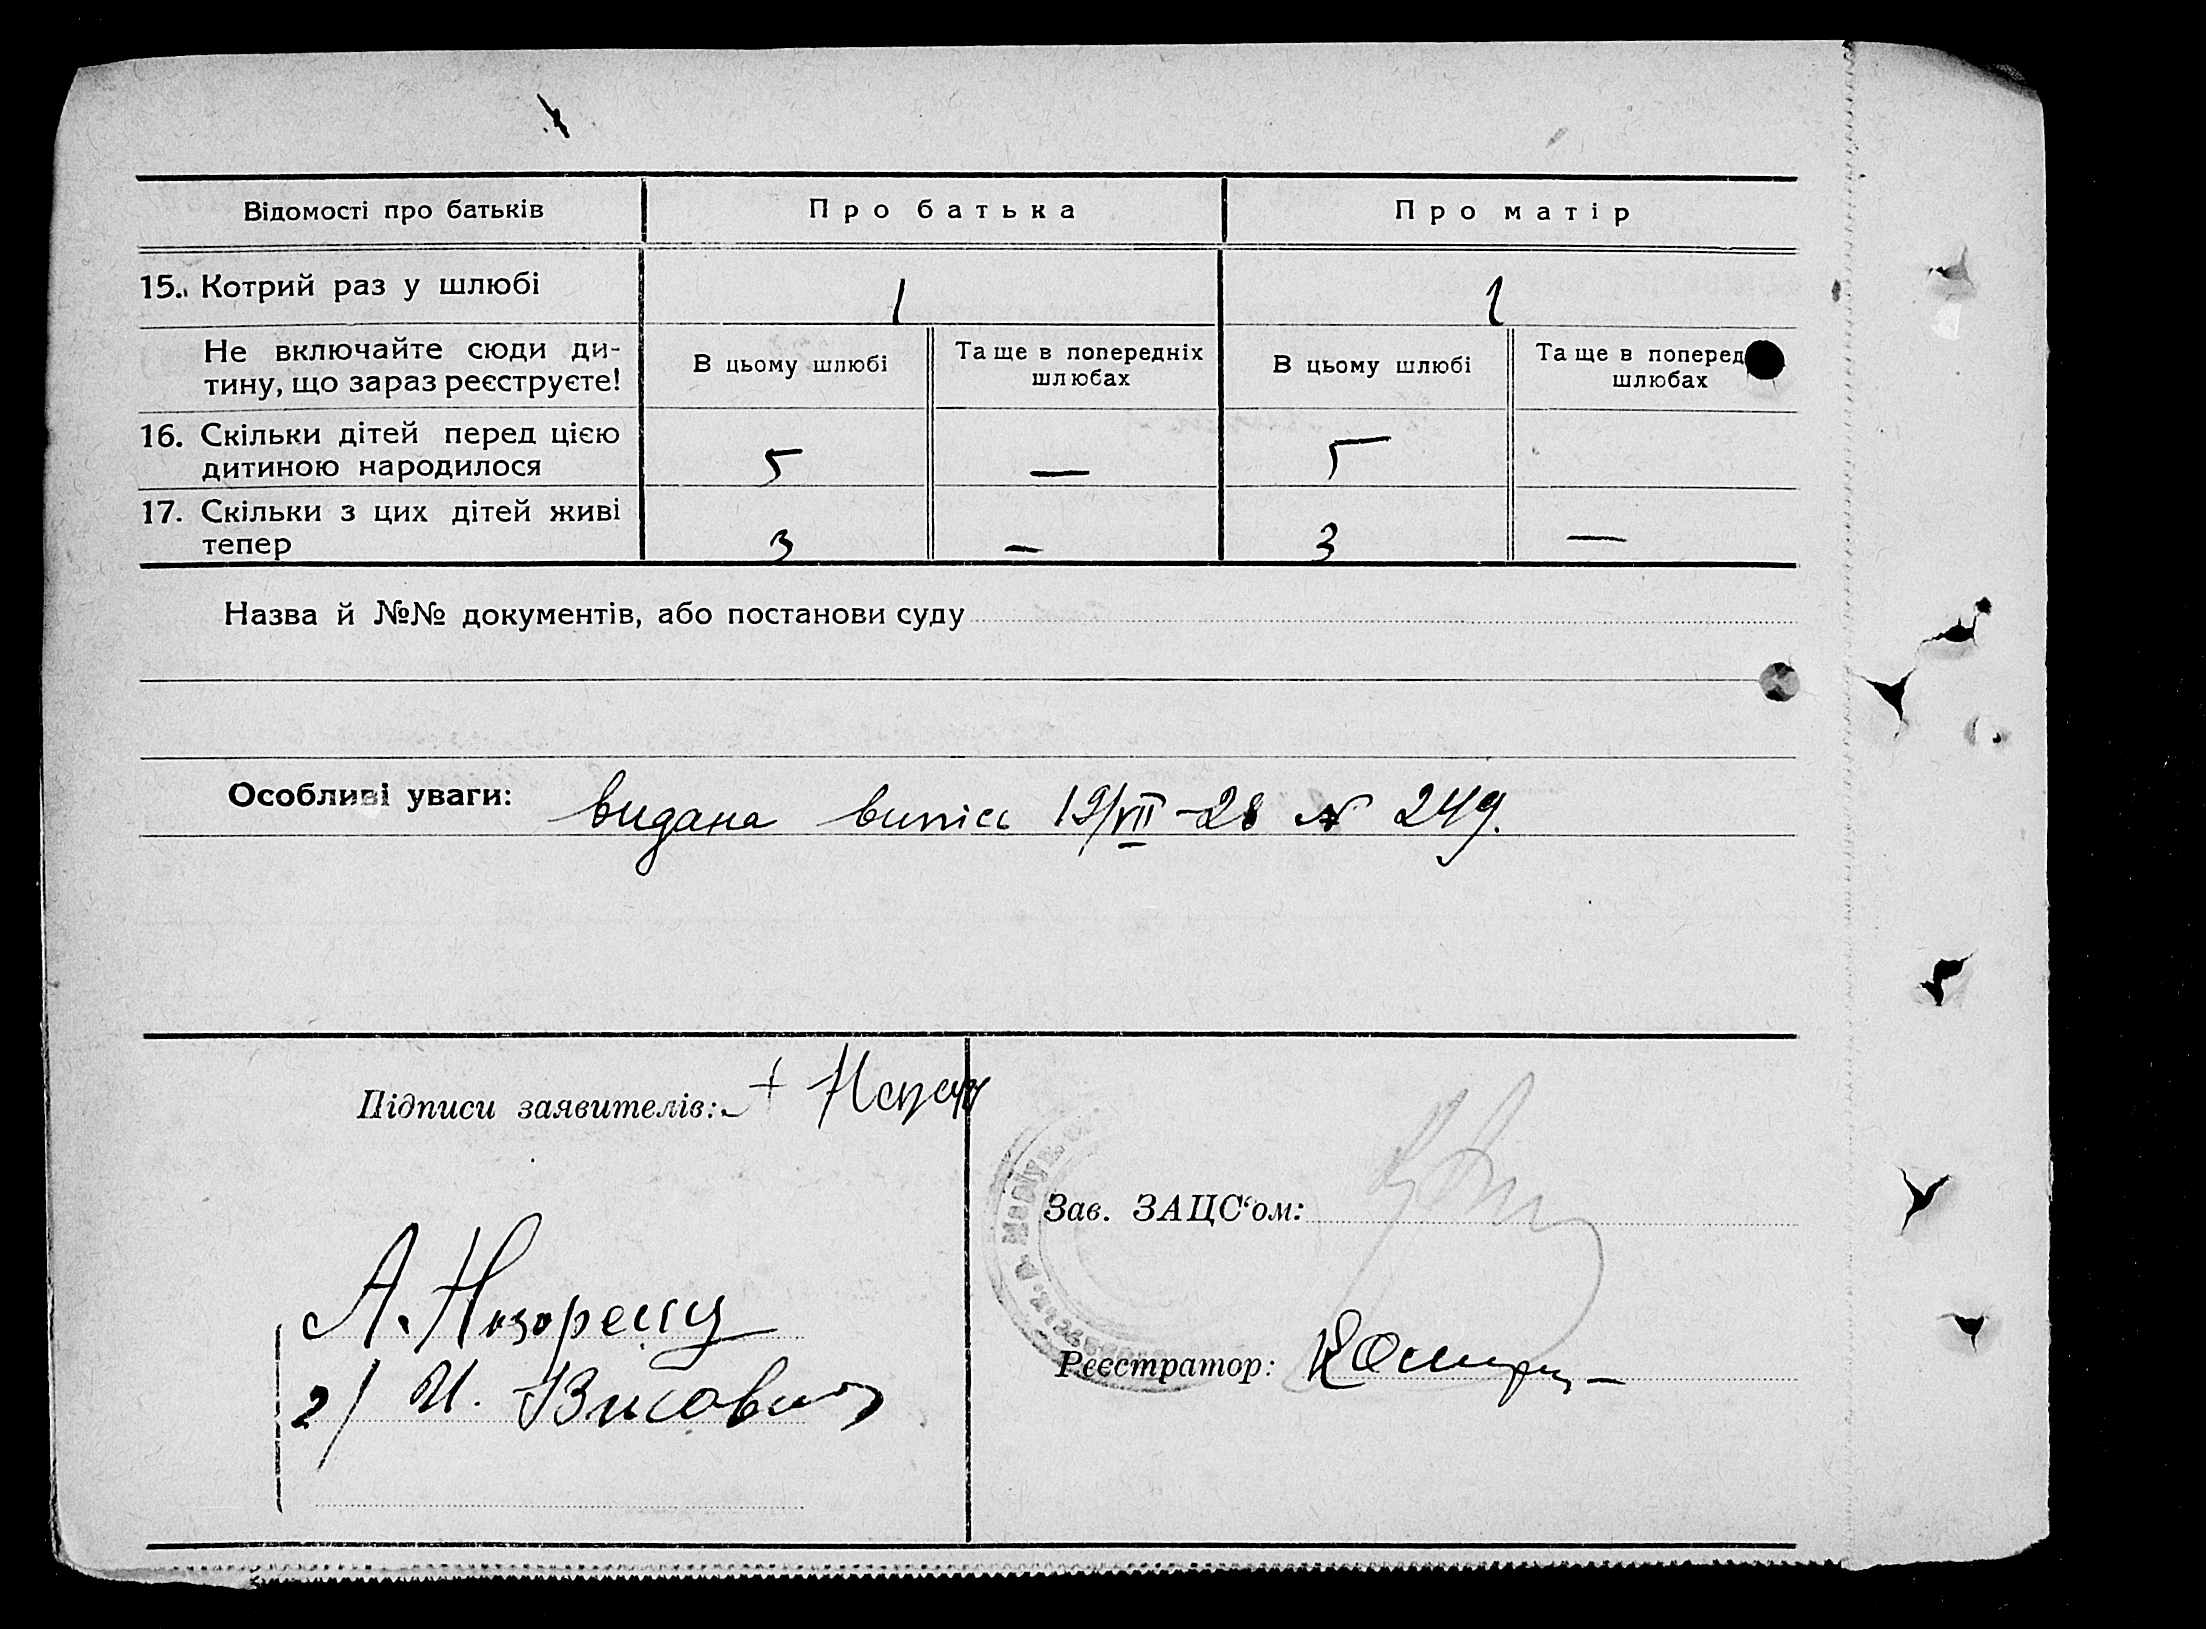 Відомості про батьків
Про батька
Про матір
15. Котрий раз у шлюбі
1
1
Не включайте сюди ди-
тину, що зараз реєструєте!
В цьому шлюбі
Та ще в попередніх
шлюбах
В цьому шлюбі
Та ще в поперед
шлюбах
16. Скільки дітей перед цією
дитиною народилося
5
—
5
17. Скільки з цих дітей живі
тепер
3
—
3
—
Назва й №№ документів, або постанови суду
Особливі уваги: видана випись 19/VII-28 № 249.
Підписи заявителів:
Зав. ЗАЦС‘ом:
А.
2/ И.
Реєстратор: